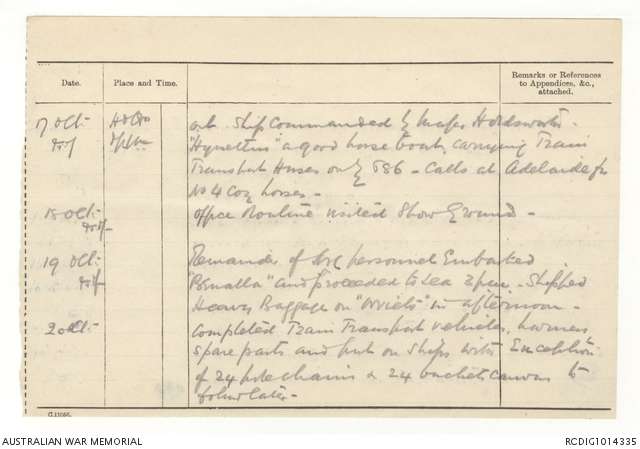 Date.
Place and Time.
Remarks or References
to Appendices, &c.,
attached.
17 Oct. out. Ship Commanded by Major Holdsworth.
"Hymettus" a good horse boat, carrying Train
Transport Horses only 686 - Calls at Adelaide for
No 4 Coy horses -
18 Oct. Office Routine visited Show Ground -
19 Oct. Remainder of personnel Embarked
"Benalla" and proceeded to Sea 2 p.m. - Shipped
Heavy Baggage on "Orvieto" in afternoon -
20 Oct. Completed Train Transport vehicles, harness
spare parts and put on ships with Exception
of 24 pole chains & 24 buckets canvas to
follow later -
C.11066.
AUSTRALIAN WAR MEMORIAL
RCDIG1014335